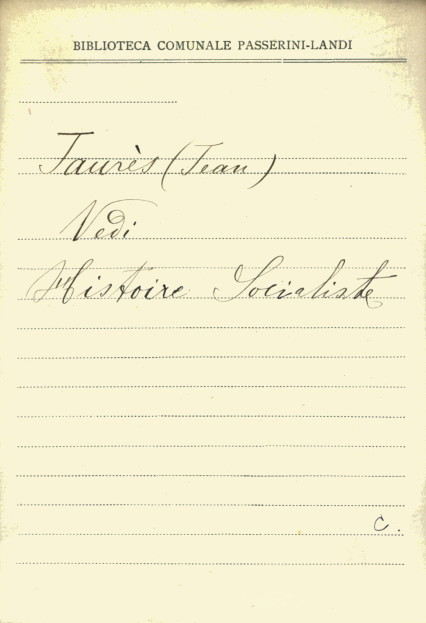 BIBLIOTECA COMUNALE PASSERINI-LANDI
Jaurès (Jean)
Vedi
Histoire Socialiste
C.